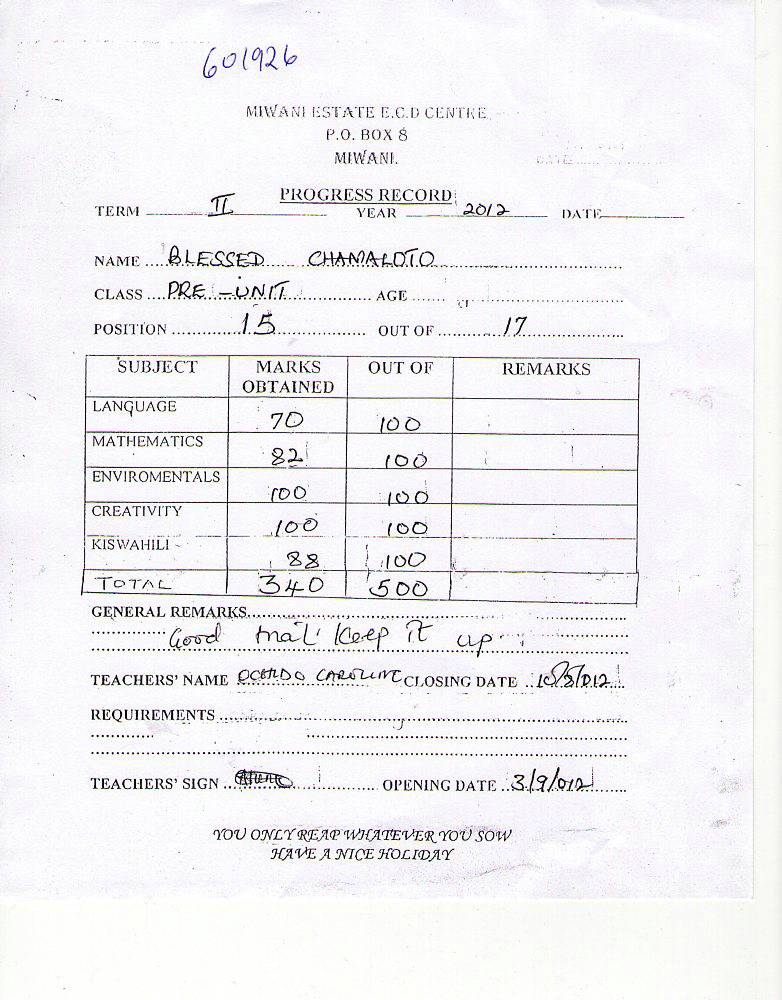 601926
MIWANI ESTATE E.C.D CENTRE
P.O. BOX 8
MIWANI.
PROGRESS RECORD
TERM II YEAR 2012 DATE
NAME BLESSED CHAMALOTO
CLASS PRE-UNIT AGE
POSITION 15 OUT OF 17
SUBJECT MARKS OBTAINED OUT OF REMARKS
LANGUAGE 70 100
MATHEMATICS 82 100
ENVIROMENTALS 100 100
CREATIVITY 100 100
KISWAHILI 88 100
TOTAL 340 500
GENERAL REMARKS
Good Keep it up
TEACHERS' NAME CAROLINE CLOSING DATE
REQUIREMENTS
TEACHERS' SIGN OPENING DATE 3/9/012
YOU ONLY REAP WHATEVER YOU SOW
HAVE A NICE HOLIDAY